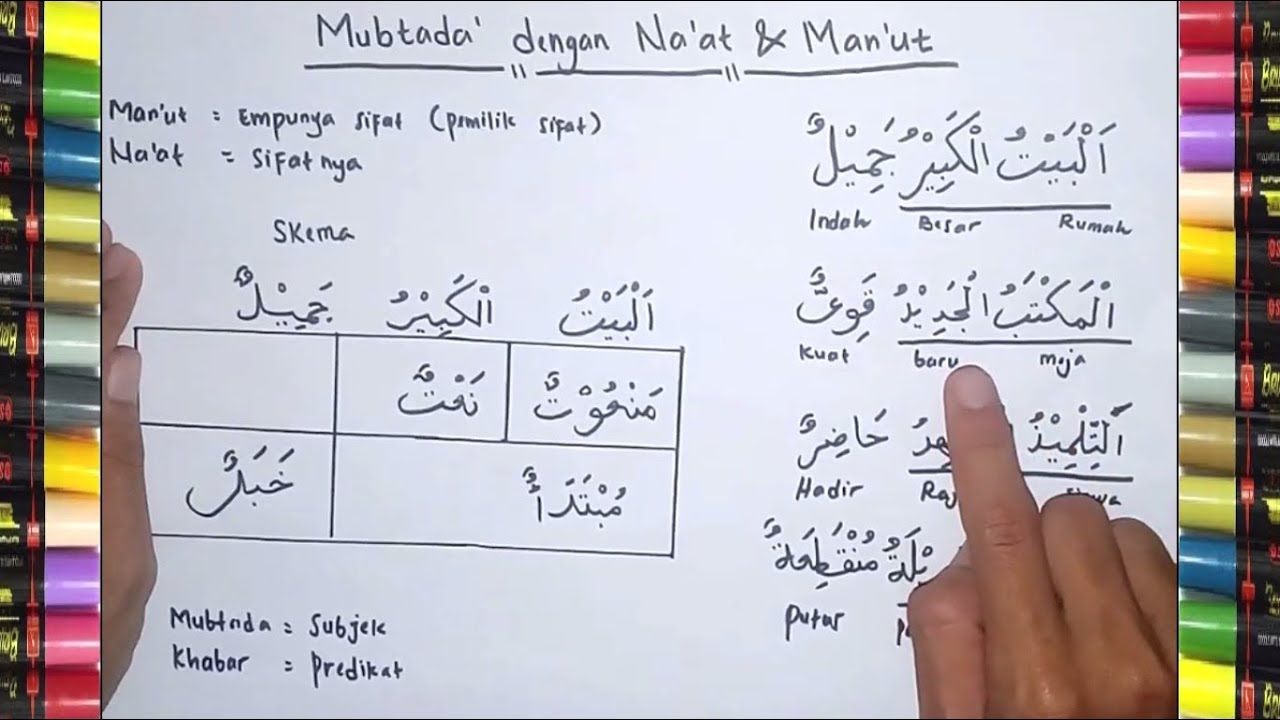 Mubtada' dengan Na'at & Man'ut
Man'ut = Empunya sifat (pemilik sifat)
Na'at = sifatnya
Skema
اَلْبَيْتُ الْكَبِيْرُ جَمِيْلٌ
مَنْعُوْتٌ نَعْتٌ
مُبْتَدَأٌ خَبَرٌ
Mubtada = Subjek
Khabar = predikat
اَلْبَيْتُ الْكَبِيْرُ جَمِيْلٌ
Indah Besar Rumah
الْمَكْتَبُ الْجَدِيْدُ قَوِيٌّ
Kuat baru meja
اَلتِّلْمِيْذُ حَاضِرٌ
Hadir
مُنْقَطِعَةٌ
putus